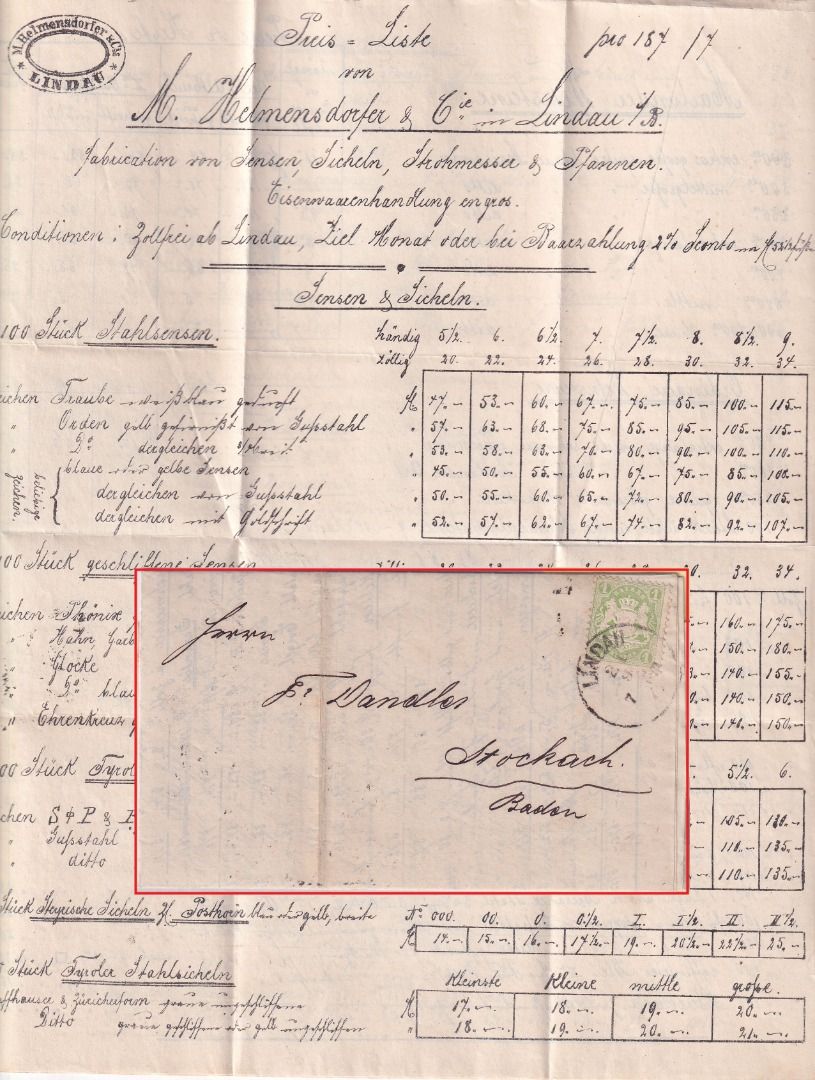 M. Helmensdorfer & Cie
LINDAU
Preis = Liste pro 187 /7
von
M. Helmensdorfer & Cie in Lindau i/B.
Fabrication von Sensen, Sicheln, Strohmesser & Pfannen.
Eisenwaarenhandlung en gros.
Conditionen: Zollfrei ab Lindau, Ziel Monat oder bei Baarzahlung 2% Sconto
Sensen & Sicheln.
100 Stück Stahlsensen. händig 5 1/2. 6. 6 1/2. 7. 7 1/2. 8. 8 1/2. 9.
zöllig 20. 22. 24. 26. 28. 30. 32. 34.
eichen Traube weißblau 47.- 53.- 60.- 67.- 75.- 85.- 100.- 115.-
" Orden gelb gefirnißt von Gußstahl " 57.- 63.- 68.- 75.- 85.- 95.- 105.- 115.-
" Do dergleichen " 53.- 58.- 63.- 70.- 80.- 90.- 100.- 110.-
beliebige Zeichen.
blaue oder gelbe Sensen " 45.- 50.- 55.- 60.- 67.- 75.- 85.- 100.-
dergleichen von Gußstahl " 50.- 55.- 60.- 65.- 72.- 80.- 90.- 105.-
dergleichen mit Goldschrift " 52.- 57.- 62.- 67.- 74.- 82.- 92.- 107.-
00 Stück geschliffene Sensen 0. 32. 34.
eichen Phönix 160.- 175.-
" Hahn, 150.- 180.-
" Glocke 140.- 155.-
" Do blau 140.- 150.-
" Ehrenkreuz 140.- 150.-
00 Stück Tyrol 5 1/2. 6.
chen S & P & 105.- 130.-
" Gußstahl 110.- 135.-
" ditto 110.- 135.-
Herrn
Fr. Dandler
Stockach.
Baden
1 1
LINDAU
7
Stück Steyrische Sicheln Posthorn blau oder gelb, breite No. 000. 00. 0. 0 1/2. I. I 1/2. II. II 1/2.
14.- 15.- 16.- 17 1/2.- 19.- 20 1/2.- 22 1/2.- 25.-
Stück Tyroler Stahlsicheln Kleinste Kleine mittle große.
affhauser & Züricherform graue ungeschliffene 17.- 18.- 19.- 20.-
Ditto graue geschliffene oder gelb ungeschliffen " 18.- 19.- 20.- 21.-